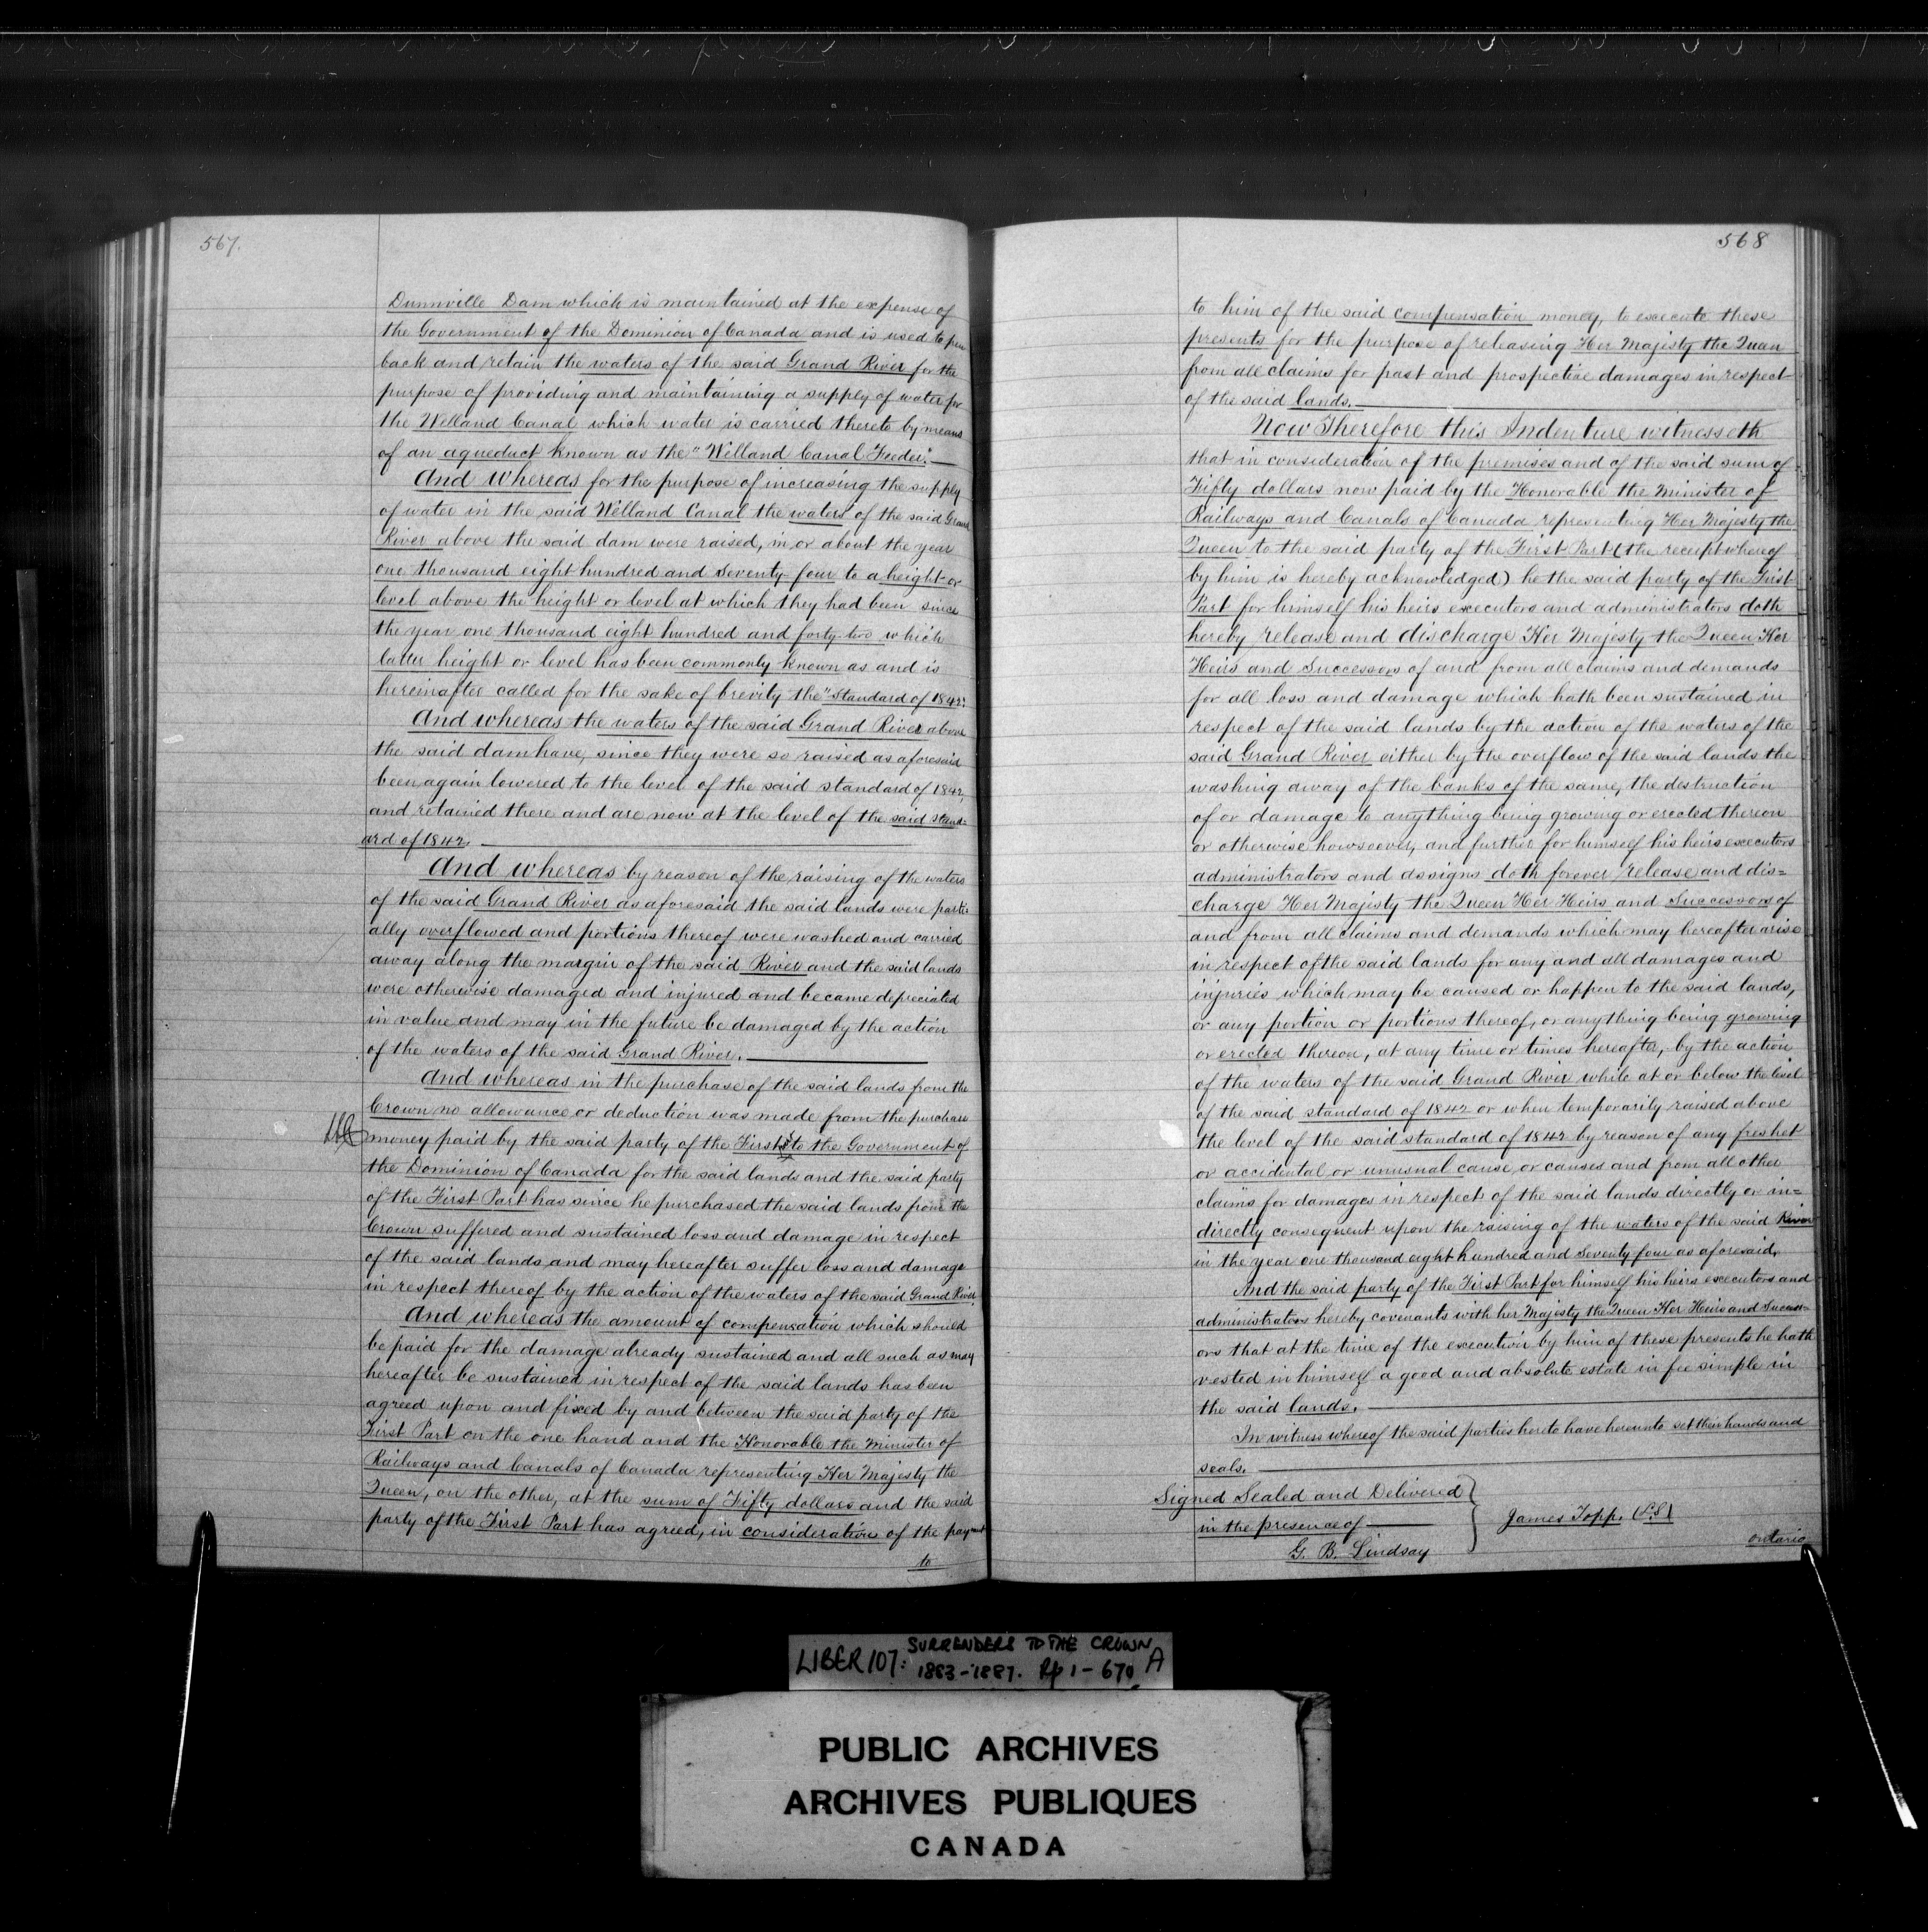 567.
Dunnville Dam which is maintained at the expense of
the Government of the Dominion of Canada and is used to pen
back and retain the waters of the said Grand River for the
purpose of providing and maintaining a supply of water for
the Welland Canal which water is carried thereto by means
of an aqueduct known as the "Welland Canal Feeder."
And Whereas for the purpose of increasing the supply
of water in the said Welland Canal the waters of the said Grand
River above the said dam were raised, in or about the year
one thousand eight hundred and Seventy four to a height or
level above the height or level at which they had been since
the year one thousand eight hundred and forty-two which
latter height or level has been commonly known as and is
hereinafter called for the sake of brevity "the "Standard of 1842".
And whereas the waters of the said Grand River above
the said dam have, since they were so raised as aforesaid
been again lowered to the level of the said standard of 1842,
and retained there and are now at the level of the said stand=
ard of 1842.
And whereas by reason of the raising of the waters
of the said Grand River as aforesaid the said lands were parti=
ally overflowed and portions thereof were washed and carried
away along the margin of the said River and the said lands
were otherwise damaged and injured and became depreciated
in value and may in the future be damaged by the action
of the waters of the said Grand River.
And whereas in the purchase of the said lands from the
Crown no allowance or deduction was made from the purchase
money paid by the said party of the First to the Government of
the Dominion of Canada for the said lands and the said party
of the First Part has since he purchased the said lands from the
Crown suffered and sustained loss and damage in respect
of the said lands and may hereafter suffer loss and damage
in respect thereof by the action of the waters of the said Grand River.
And whereas the amount of compensation which should
be paid for the damage already sustained and all such as may
hereafter be sustained in respect of the said lands has been
agreed upon and fixed by and between the said party of the
First Part on the one hand and the Honorable the Minister of
Railways and Canals of Canada representing Her Majesty the
Queen, on the other, at the sum of Fifty dollars and the said
party of the First Part has agreed, in consideration of the payment
to
568
to him of the said compensation money, to excecute these
presents for the purpose of releasing Her Majesty the Queen
from all claims for past and prospective damages in respect
of the said lands.
Now Therefore this Indenture witnesseth
that in consideration of the premises and of the said sum of
Fifty dollars now paid by the Honorable the Minister of
Railways and Canals of Canada representing Her Majesty the
Queen to the said party of the First Part (the receipt whereof
by him is hereby acknowledged) he the said party of the First
Part for himself his heirs executors and administrators doth
hereby release and discharge Her Majesty the Queen Her
Heirs and Successors of and from all claims and demands
for all loss and damage which hath been sustained in
respect of the said lands by the action of the waters of the
said Grand River either by the overflow of the said lands the
washing away of the banks of the same, the destruction
of or damage to anything being growing or erected thereon
or otherwise howsoever, and further for himself his heirs excecutors
administrators and assigns doth forever release and dis=
charge Her Majesty the Queen Her Heirs and Successors of
and from all claims and demands which may hereafter arise
in respect of the said lands for any and all damages and
injuries which may be caused or happen to the said lands,
or any portion or portions thereof, or anything being growing
or erected thereon, at any time or times hereafter, by the action
of the waters of the said Grand River while at or below the level
of the said standard of 1842 or when temporarily raised above
the level of the said standard of 1842 by reason of any freshet
or accidental or unusual cause or causes and from all other
claims for damages in respect of the said lands directly or in=
directly consequent upon the raising of the waters of the said River
in the year one thousand eight hundred and Seventy four as aforesaid.
And the said party of the First Part for himself his heirs excecutors and
administrators hereby covenants with her Majesty the Queen Her Heirs and Success=
ors that at the time of the excecution by him of these presents he hath
vested in himself a good and absolute estate in fee simple in
the said lands.
In witness whereof the said parties hereto have hereunto set their hands and
seals.
Signed Sealed and Delivered
in the presence of
G. B. Lindsay
James Topp. (L.S)
ontario
LIBER 107: SURRENDERS TO THE CROWN A
1883-1887. Pp 1-670
PUBLIC ARCHIVES
ARCHIVES PUBLIQUES
CANADA